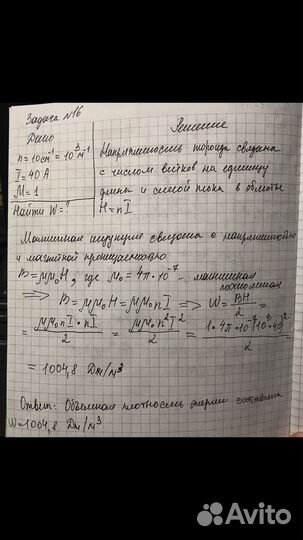 Задача №16
Дано
Решение
n = 10 см⁻¹ = 10³ м⁻¹
I = 40 А
M = 1
Найти W = ?
Напряженность тороида связана
с числом витков на единицу
длины и силой тока в обмотке
H = nI
Магнитная индукция связана с напряженностью
и магнитной проницаемостью
B = μμ₀H, где μ₀ = 4π·10⁻⁷ – магнитная постоянная
⟹ B = μμ₀H = μμ₀nI ⟹ W = BH/2 =
= μμ₀nI·nI/2 = μμ₀n²I²/2 = 1·4π·10⁻⁷(10³·40)²/2
= 1004,8 Дж/м³
Ответ: Объемная плотность энергии составила
W = 1004,8 Дж/м³
Avito